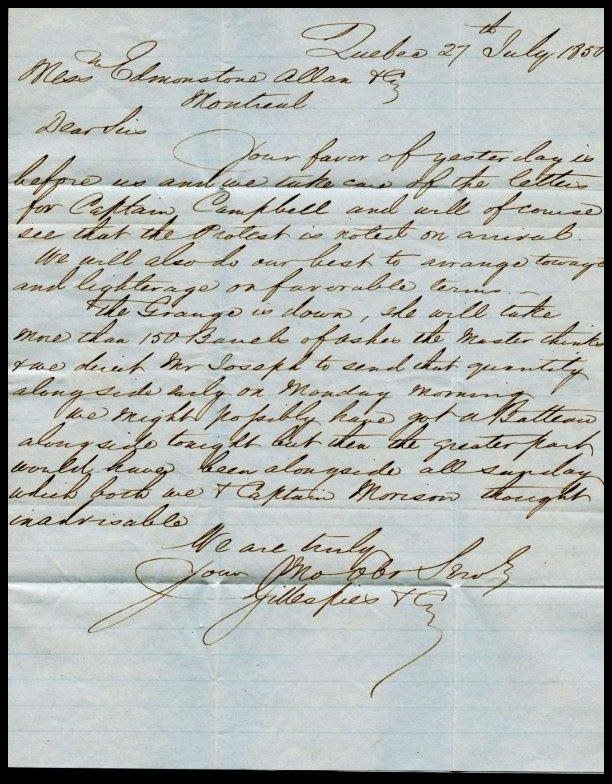 Quebec 27th July 1850
Messrs Edmonstone Allan & Co
Montreal
Dear Sirs
Your favor of yesterday is
before us and we take care of the letters
for Captain Campbell and will of course
see that the Protest is noted on arrival.
We will also do our best to arrange towage
and lighterage on favorable terms. —
The Grange is down, she will take
more than 150 Barrels of ashes the Master thinks
& we direct Mr Joseph to send that quantity
alongside early on Monday morning
We might possibly have got a Batteau
alongside tonight but then the greater part
would have been alongside all Sunday
which both we & Captain Morison thought
inadvisable
We are truly
Your Mo Obt Servts
Gillespies & Co